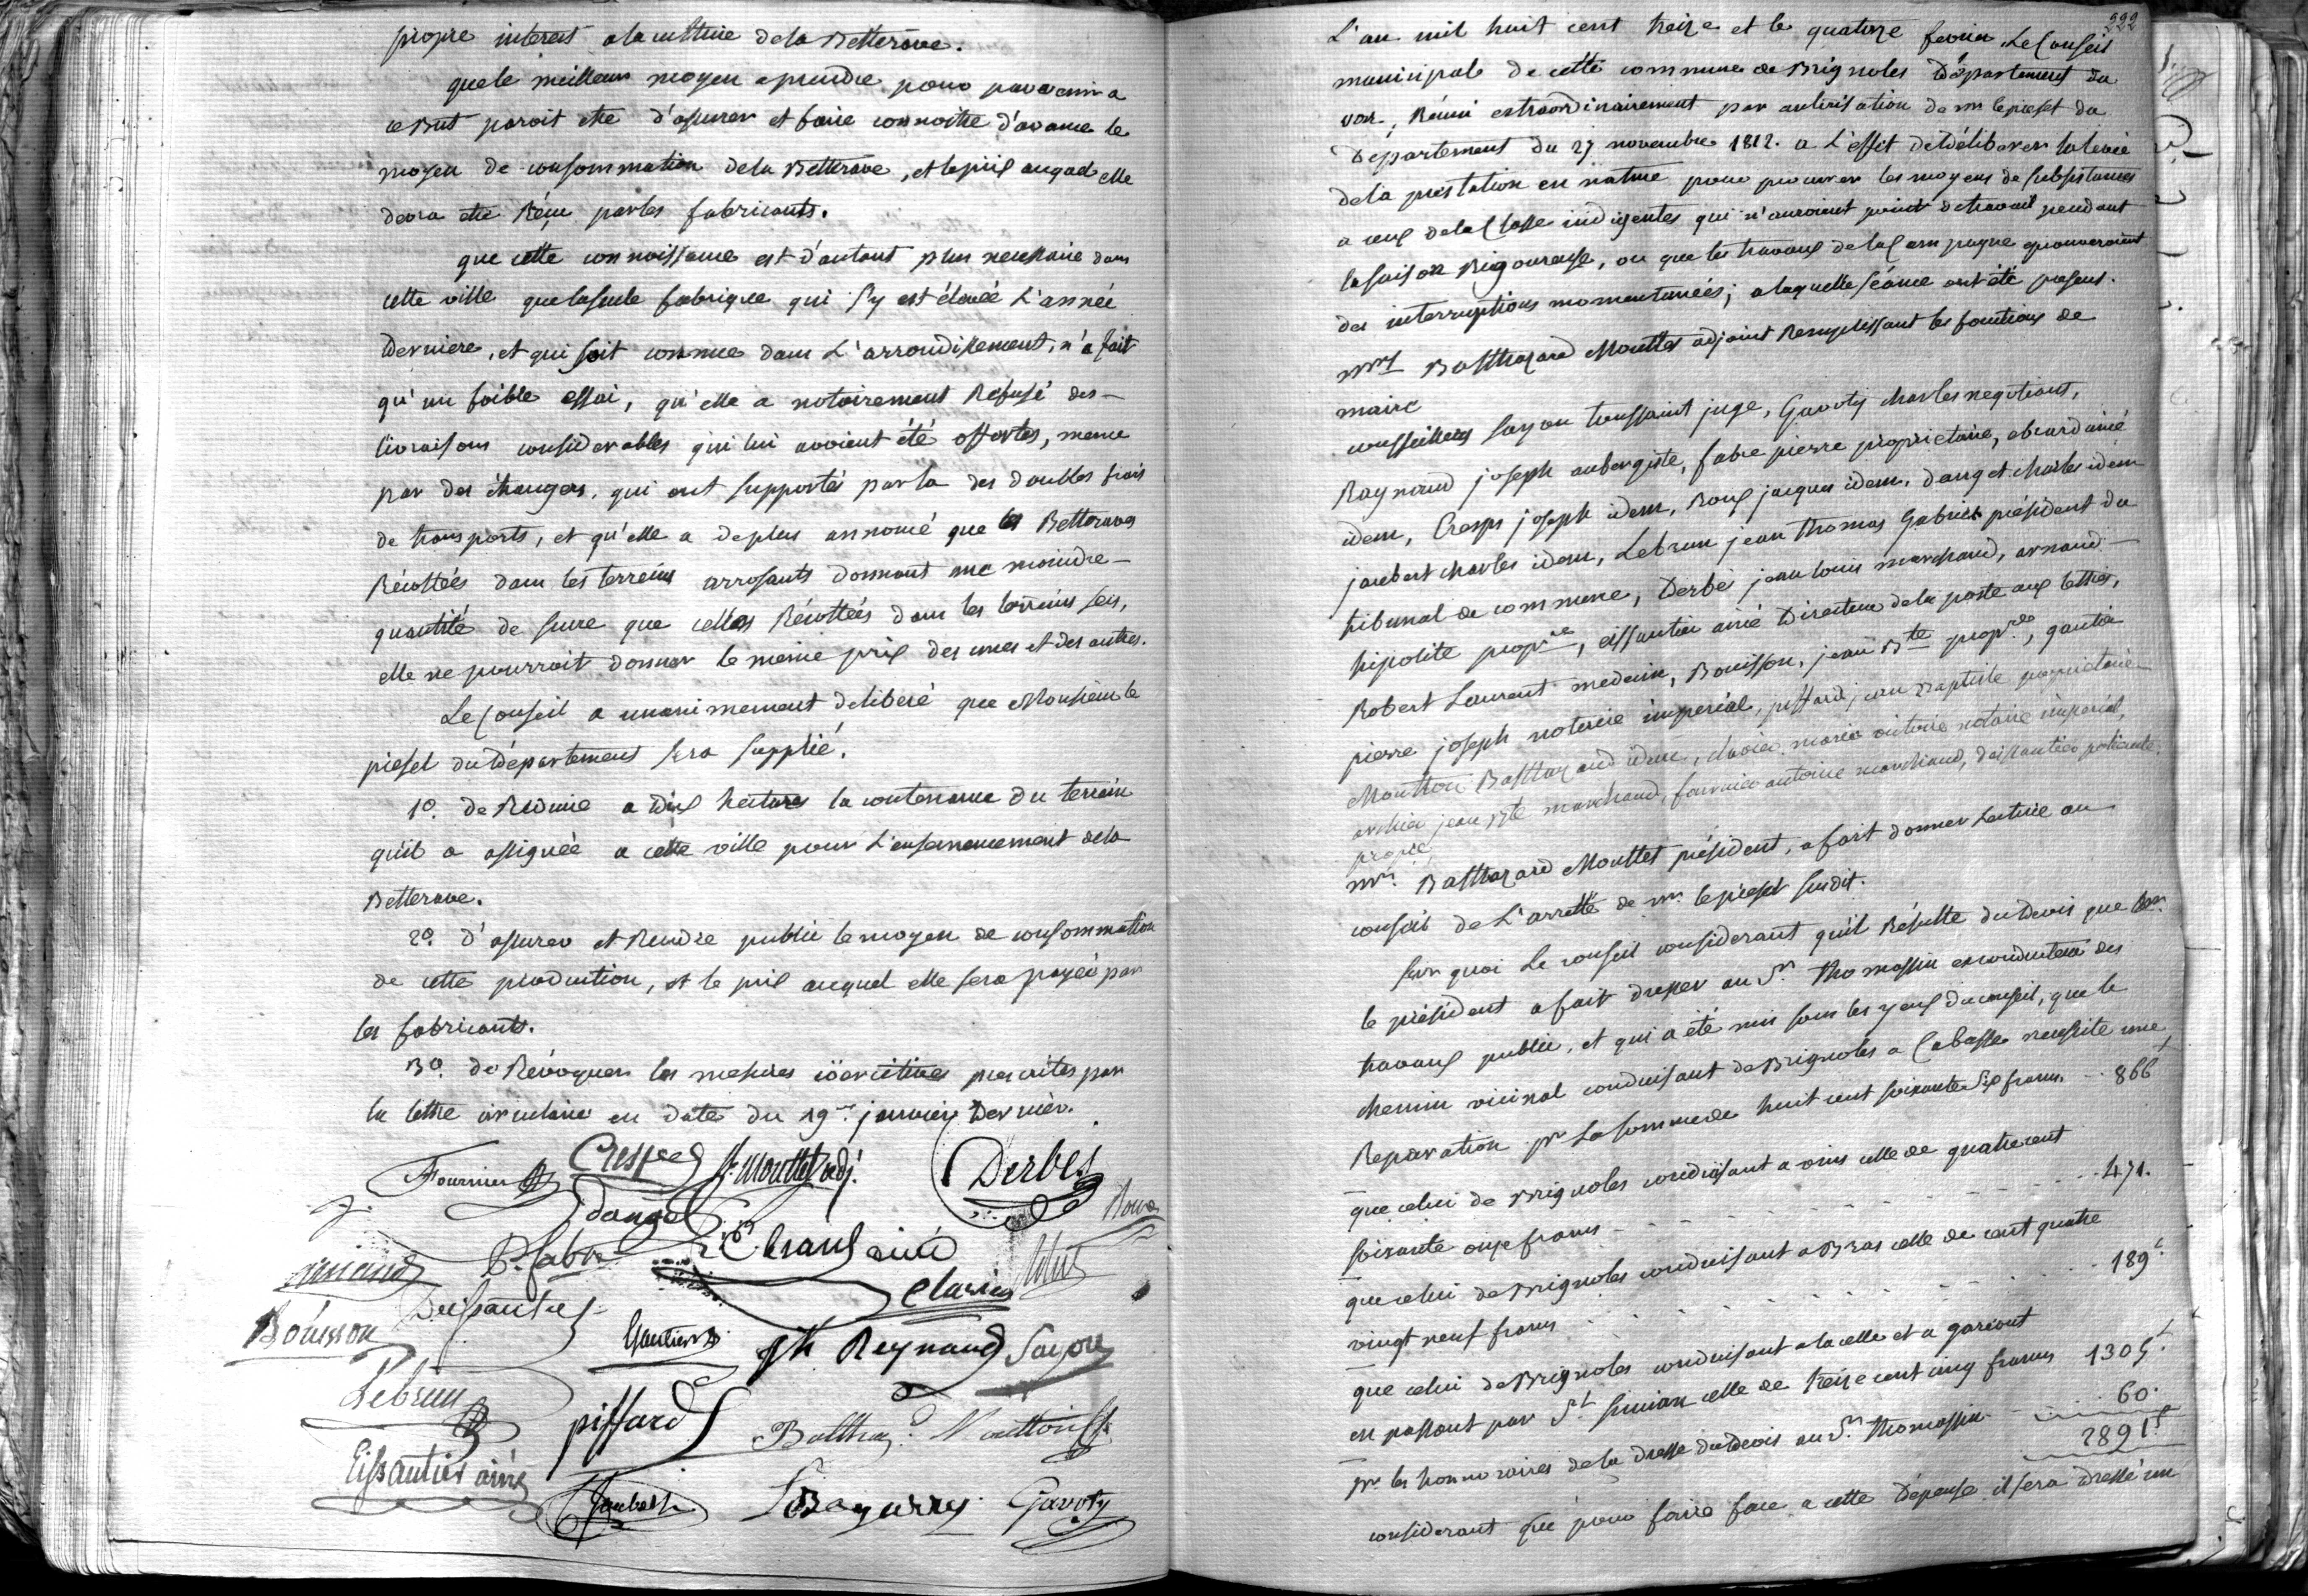 propre interest a la culture de la Betterave.
que le meilleur moyen a prendre pour parvenir a
ce But paroit etre d'assurer et faire connoitre d'avance le
moyen de consommation de la Betterave, et le prix auquel elle
devra etre Réçue par les fabricants.
que cette connoissance est d'autant plus necessaire dans
cette ville que la seule fabrique qui s'y est élevée L'année
Derniere, et qui soit connue dans L'arrondissement, n'a fait
qu'un foible essai, qu'elle a notoirement Refusé des
livraisons considerables qui lui avoient été offertes, meme
par des étrangers, qui ont supportés par la des doubles frais
de transports, et qu'elle a de plus annoncé que les Betteraves
Récoltées dans les terreins arrosants donnant une moindre
quantité de sucre que celles Récoltées dans les terreins secs,
elle ne pourroit donner le meme prix des unes et des autres.
Le Conseil a unanimement deliberé que Monsieur le
prefet du Département sera supplié.
1o. de Reduire a Dix hectares la contenance du terrein
qu'il a assignée a cette ville pour L'ensemencement de la
Betterave.
2o. D'assurer et Rendre public le moyen de consommation
de cette production, et le prix auquel elle sera payée par
les fabricants.
3o. de Révoquer les mesures coercitives prescrites par
la lettre circulaire en date du 19 janvier Dernier.
Fournier Crespe Mouttet adj. Derbes
danget Roux
P. fabre Ebrard ainé
Clavier
Deissautier
Bouisson Gautier Jh Reynaud Sayou
Lebrun
piffard Balthaz.d Moutton
Eissautier ainé
Jaubert Gavoty
222
L'an mil huit cent treize et le quatorze fevrier Le Conseil
municipal de cette commune de Brignoles Département du
var, Réuni extraordinairement par autorisation de mr le prefet du
Département du 27 novembre 1812. a L'effet de Délibérer la levée
de la prestation en nature pour procurer les moyens de subsistances
a ceux de la Classe indigentes qui n'auroient point de travail pendant
la saison Rigoureuse, ou que les travaux de la Campagne eprouveroient
des interruptions momentanées; a laquelle séance ont été presens.
mrs Balthazard Mouttet adjoint Remplissant les fonctions de
maire
conseillers Sayou toussaint juge, Gavoty charles negotiant,
Raynaud joseph aubergiste, fabre pierre proprietaire, ebrard ainé
idem, Cresps joseph idem, Roux jacques idem, danget charles idem
jaubert charles idem, Lebrun jean thomas Gabriel président du
tribunal de commerce, Derbés jean louis marchand, arnaud
hipolite propre, eissautier ainé Directeur de la poste aux lettres,
Robert Laurent medecin, Bouisson, jean Bte propre, gautier
pierre joseph notaire imperial, piffard jean Baptiste proprietaire
Moutton Balthazard idem, clavier marie victoire notaire imperial,
archier jean Bte marchand, fournier antoine marchand, deissautier
propre,
mr. Balthazard Mouttet président, a fait donner Lecture au
conseil de L'arretté de mr le prefet susdit.
Sur quoi Le conseil considerant qu'il Résulte du Devis que mr.
le président a fait dresser au Sr. thomassin exconducteur des
travaux public, et qui a été mis sous les yeux du conseil, que le
chemin vicinal conduisant de Brignoles a Cabasse necessite une
Reparation pr La somme de huit cent soixante Six francs. .. 866
que celui de Brignoles conduisant a vins celle de quatre cent
soixante onze francs - - - - - - - 471.
que celui de Brignoles conduisant a Bras celle de cent quatre
vingt neuf francs . . . . . . . 189
que celui de Brignoles conduisant a la celle et a gareoult
en passant par St. simian celle de treize cent cinq francs 1305.
pr les honnoraires de la dresse du Devis au Sr. thomassin .... 60.
2891.
considerant que pour faire face a cette Dépense il sera dressé un